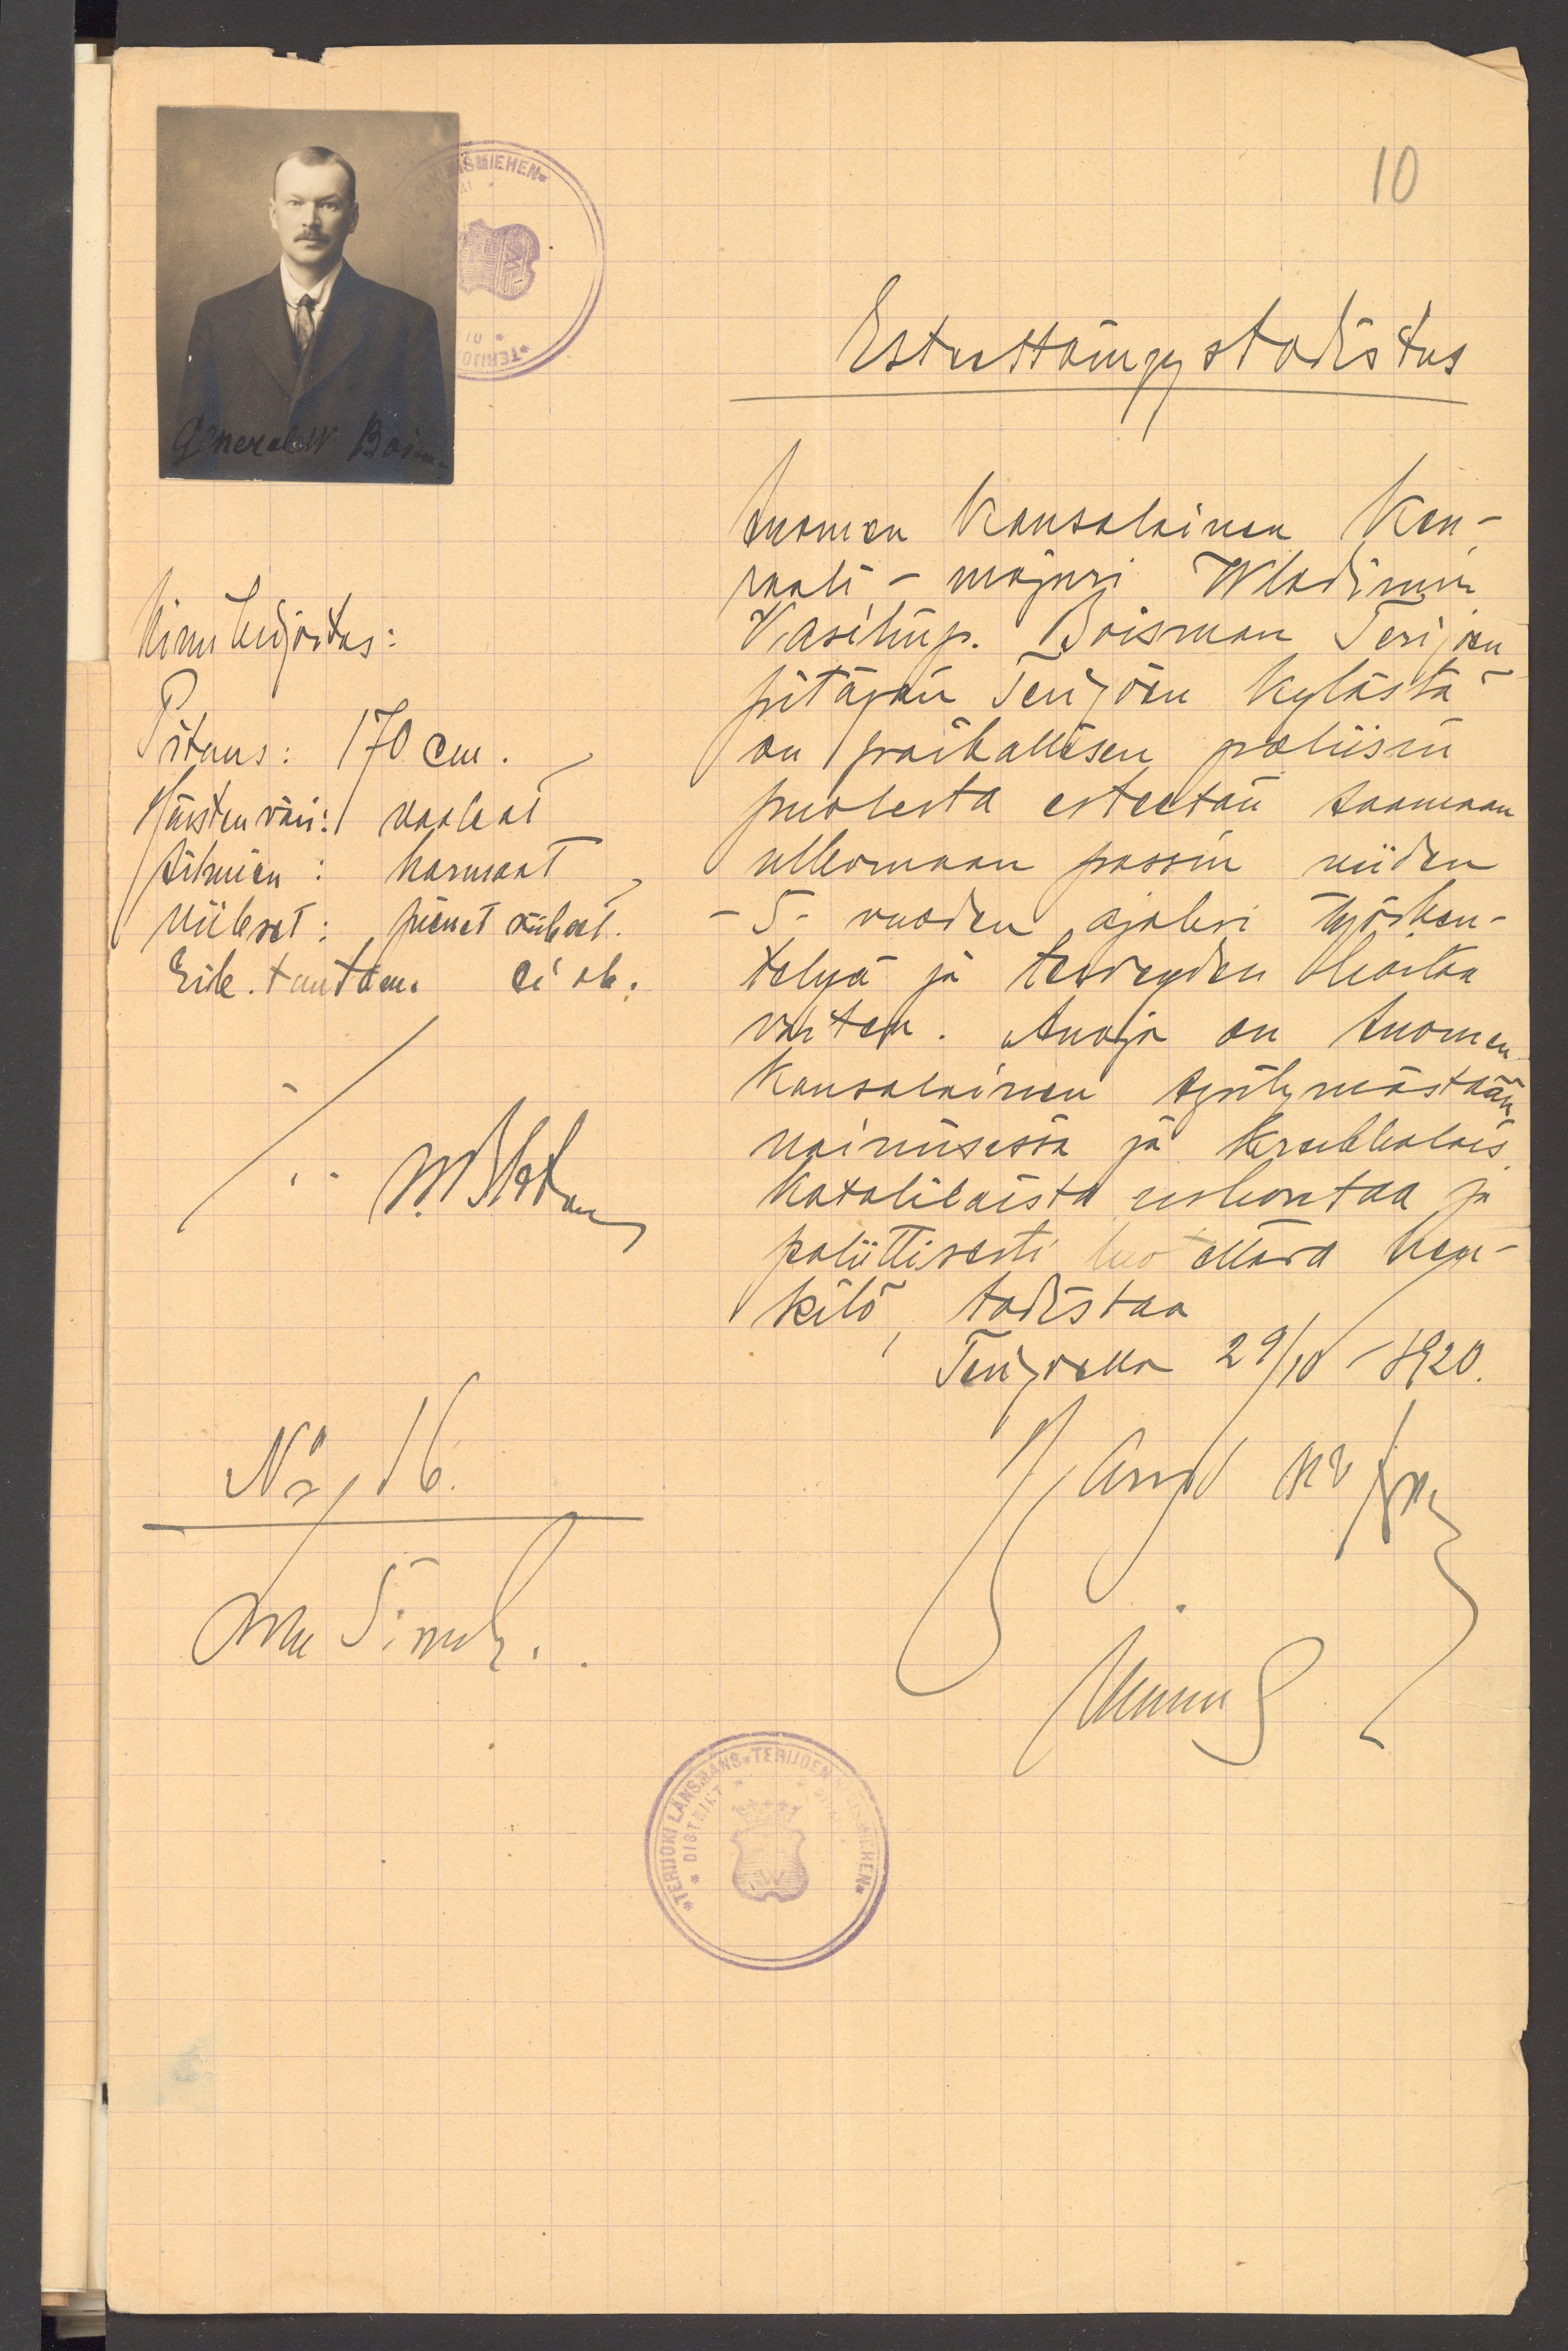 10
General W Boisman
SMIEHEN
TERIJO
Estettömyystodistus
Suomen Kansalainen Ken-
raali - majuri Wladimir
Vasilinp. Boisman Terijoen
pitäjän Terijoen kylästä
on paikallisen poliisin
puolesta esteetön saamaan
ulkomaan passin viiden
- 5 - vuoden ajaksi työsken-
telyä ja terveyden hoitoa
varten. Anoja on Suomen
Kansalainen syntymästään
naimisessa ja kreikkalais
katolilaista uskontoa ja
poliittisesti luotettava hen-
kilö, todistaa
Terijoella 29/10 - 1920.
Nimikirjoitus:
Pituus: 170 cm.
Hiusten väri: vaaleat
Silmien: harmaat
Viikset: pienet viikset.
Erik. tuntom. ei ole.
No 16.
*TERIJOKI LÄNSMANS*TERIJOEN NIMISMIEHEN*
* DISTRIKT *